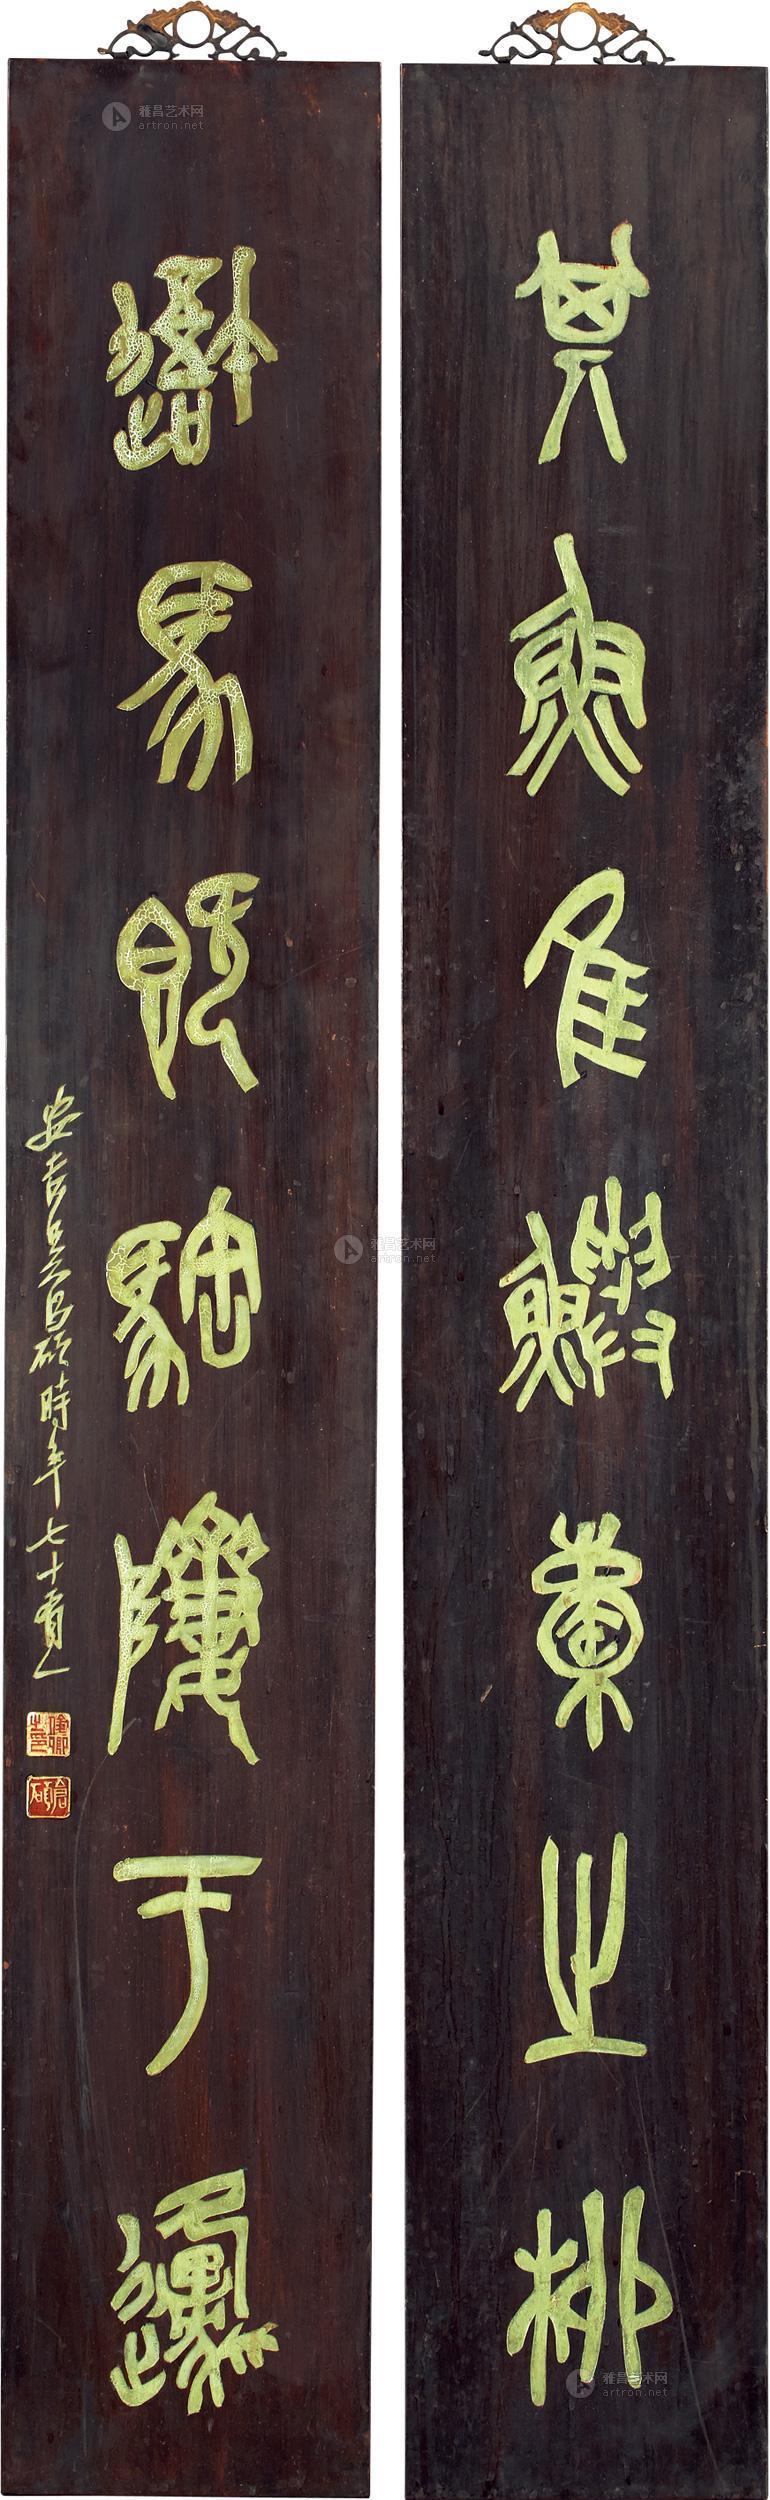 其魚隹鱮橐之柳
馬既隮于邍
安吉吳昌碩時年七十有八
俊卿之印
倉碩
雅昌艺术网
artron.net
雅昌艺术网
artron.net
雅昌艺术网
artron.net